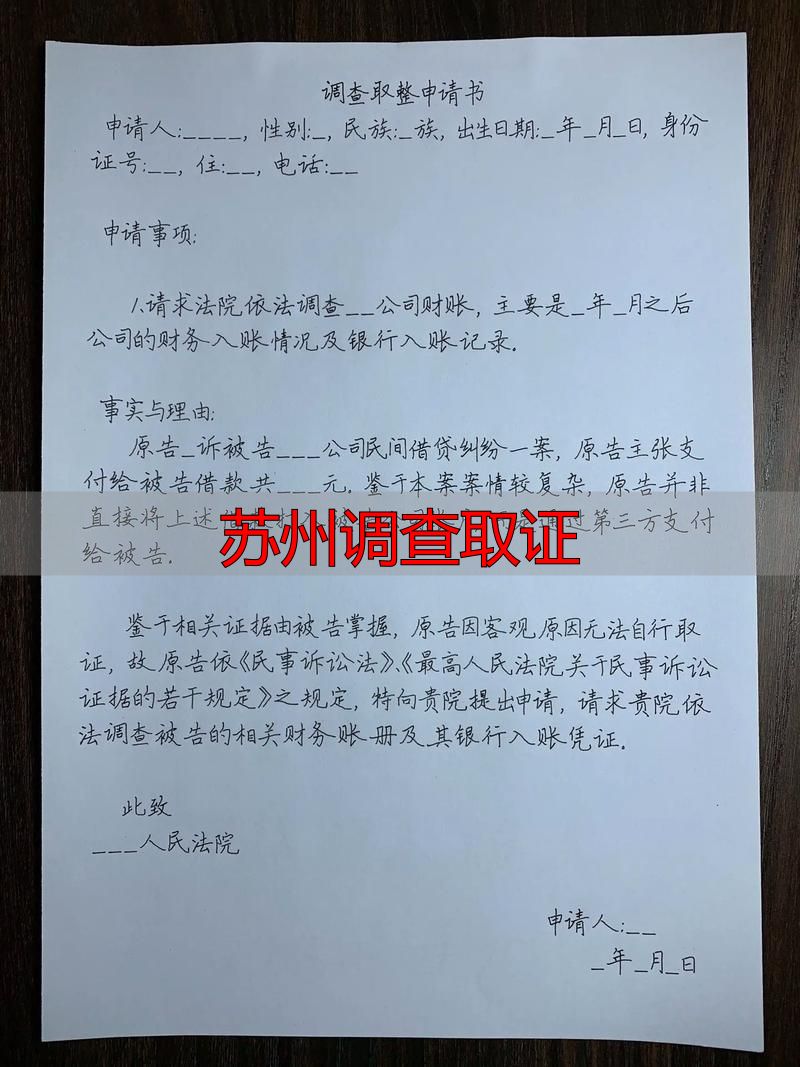 调查取整申请书
申请人:____, 性别:_, 民族:_族, 出生日期:_年_月_日, 身份
证号:__, 住:__, 电话:__
申请事项:
1.请求法院依法调查__公司财账, 主要是_年_月之后
公司的财务入账情况及银行入账记录.
事实与理由:
原告_诉被告___公司民间借贷纠纷一案, 原告主张支
付给被告借款共___元. 鉴于本案案情较复杂, 原告并非
直接将上述 通过第三方支付
苏州调查取证
给被告.
鉴于相关证据由被告掌握, 原告因客观原因无法自行取
证, 故原告依《民事诉讼法》、《最高人民法院关于民事诉讼
证据的若干规定》之规定, 特向贵院提出申请, 请求贵院依
法调查被告的相关财务账册及其银行入账凭证.
此致
___人民法院
申请人:__
_年_月_日